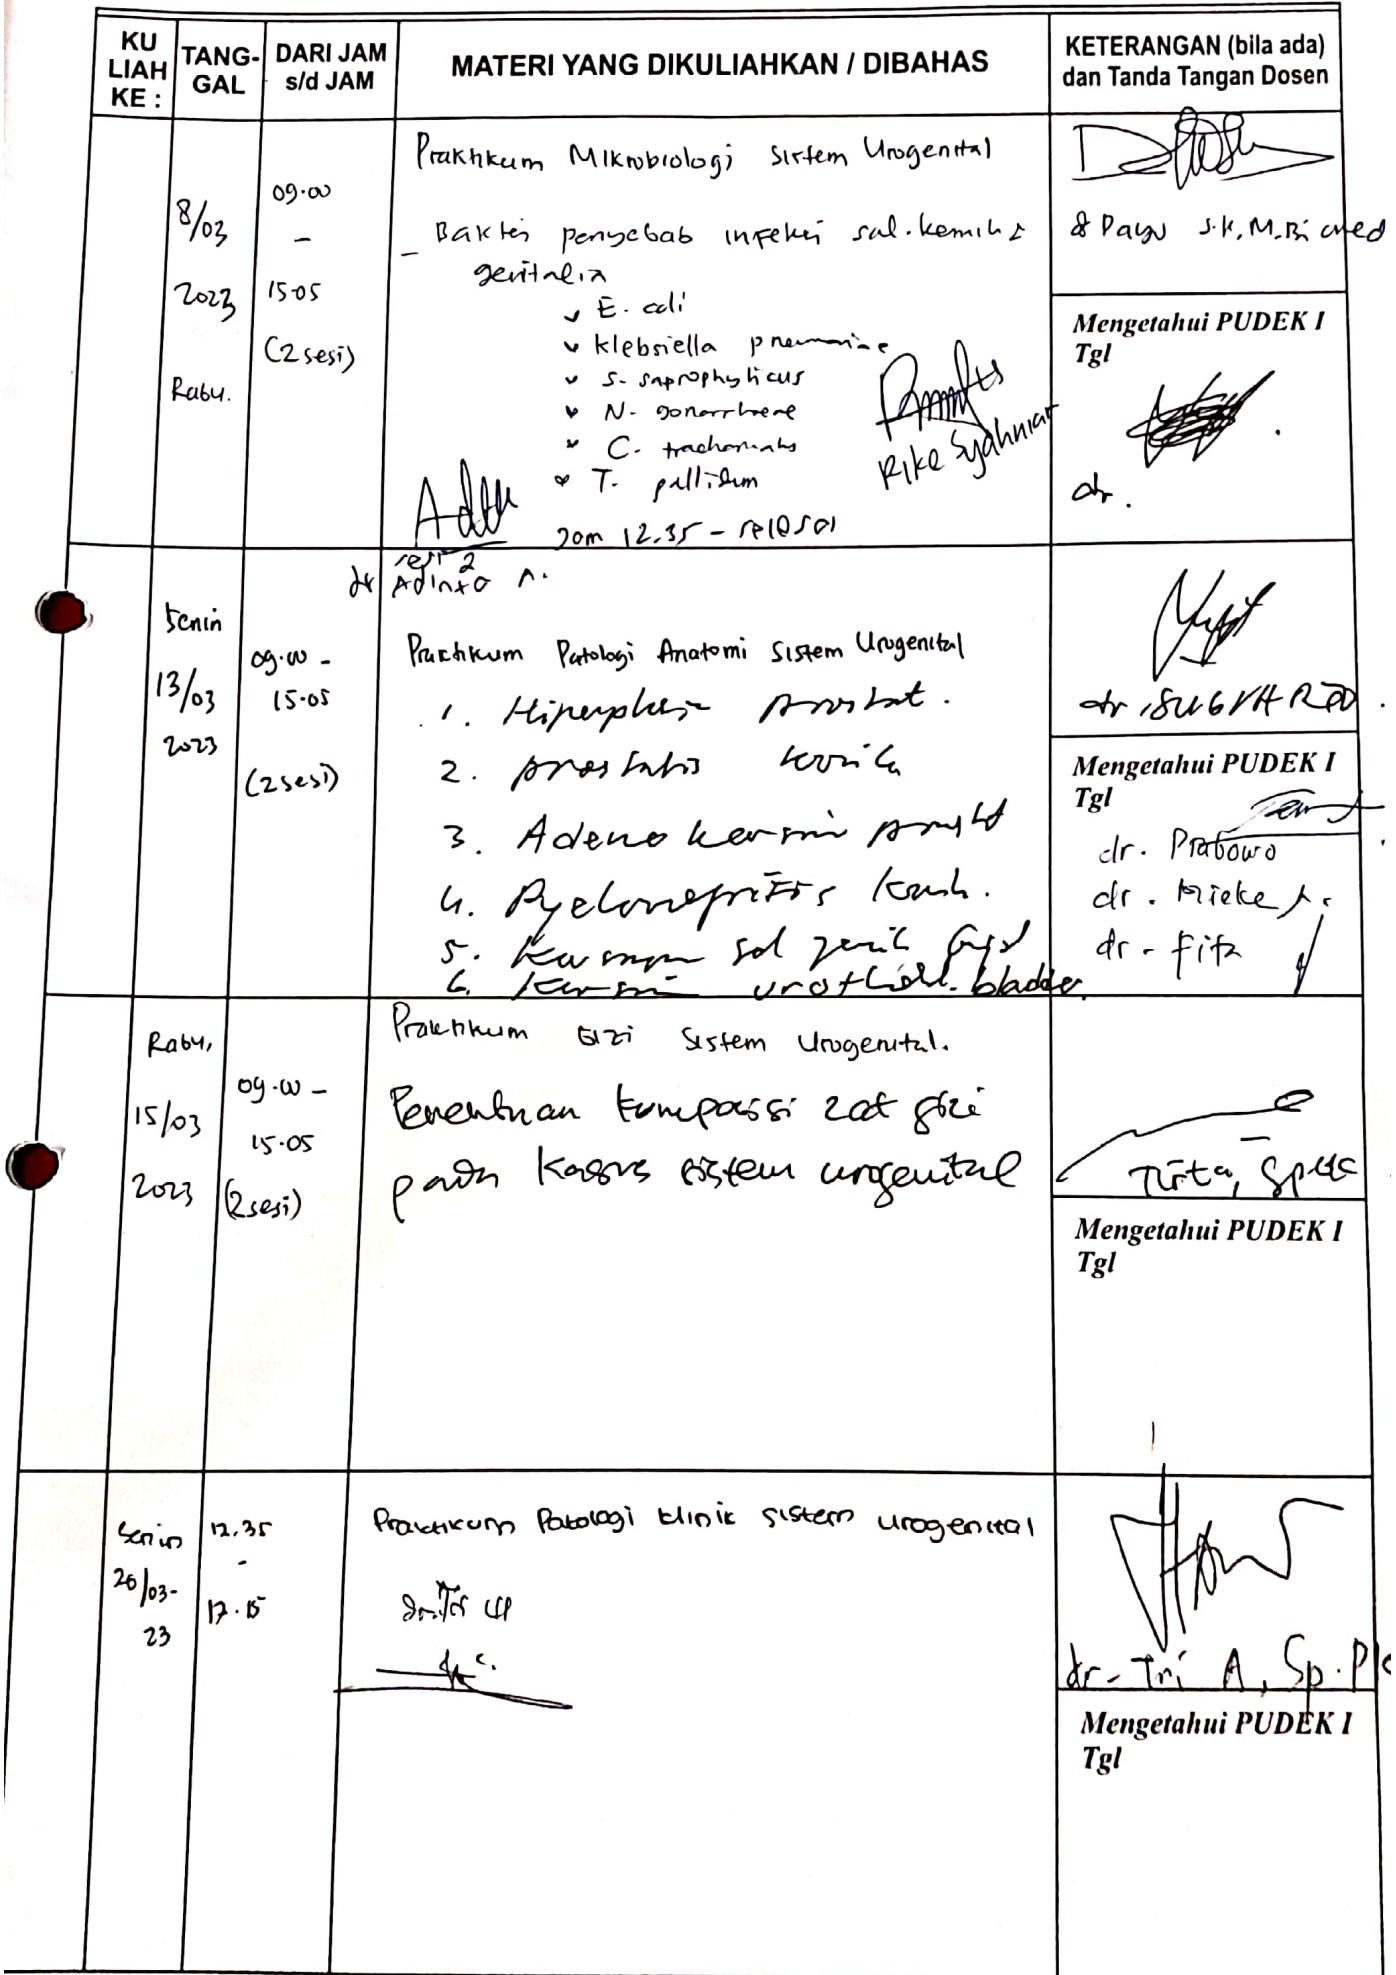 KU
LIAH
KE :
TANG-
GAL
DARI JAM
s/d JAM
MATERI YANG DIKULIAHKAN / DIBAHAS
KETERANGAN (bila ada)
dan Tanda Tangan Dosen
8/03
2023
Rabu.
09.00
-
15.05
(2 sesi)
Praktikum Mikrobiologi Sistem Urogenital
- Bakteri penyebab infeksi sal. kemih &
genitalia
E. coli
Klebsiella pneumoniae
S. saprophyticus
N. gonorrhoeae
C. trachomatis
T. pallidum
Jam 12.35 - selesai
Rike Syahniar
sesi 2
dr Adinta A.
S.K, M.Biomed
Mengetahui PUDEK I
Tgl
dr.
Senin
13/03
2023
09.00 -
15.05
(2 sesi)
Praktikum Patologi Anatomi Sistem Urogenital
1. Hiperplasi prostat.
2. prostatis kronik
3. Adeno karsinoma prostat
4. Pyelonefritis kronik.
5. Karsinoma sel jernih ginjal
6. Karsinoma urothelial bladder.
dr.
Mengetahui PUDEK I
Tgl
dr. Prabowo
dr. Mieke
dr. Fita
Rabu,
15/03
2023
09.00 -
15.05
(2 sesi)
Praktikum Gizi Sistem Urogenital.
Penentuan komposisi zat gizi
pada kasus sistem urogenital
Tirta, SpGK
Mengetahui PUDEK I
Tgl
Senin
20/03-
23
12.35
-
17.15
Praktikum Patologi klinik sistem urogenital
dr. Tri A, Sp.PK
Mengetahui PUDEK I
Tgl